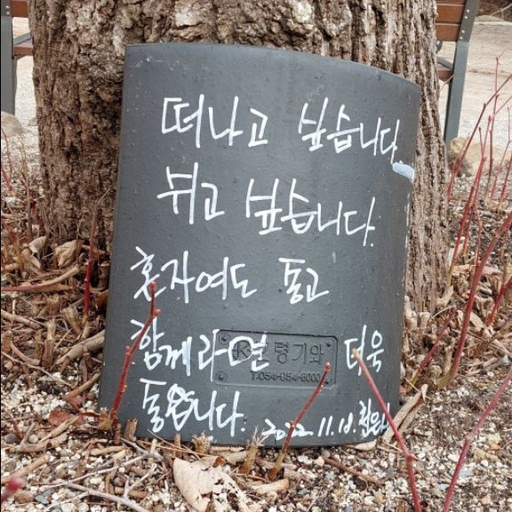 떠나고 싶습니다
쉬고 싶습니다.
혼자여도 좋고
함께라면 더욱
좋습니다. 2022. 11. 10.
령기와